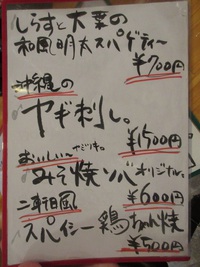 しらすと大葉の
和風明太スパゲティー
¥700円
沖縄の
ヤギ刺し。
¥1500円
おいしい〜
みそ焼ソバ オリジナル。
¥600円
二軒目風
スパイシー鶏ちゃん焼
¥500円